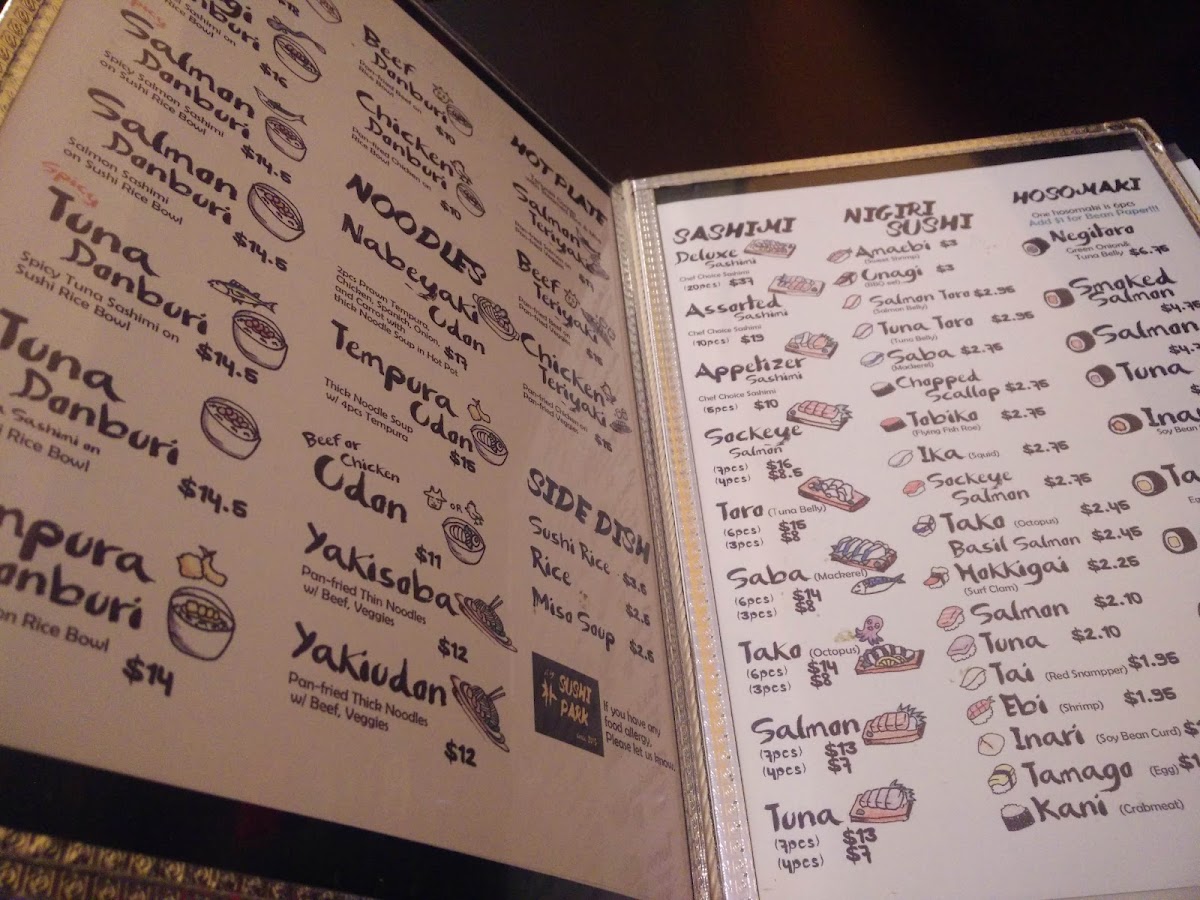 $18
Danburi
Sashimi on
Rice Bowl
$16
Spicy
Salmon
Danburi
Spicy Salmon Sashimi
on Sushi Rice Bowl
$14.5
Salmon
Danburi
Salmon Sashimi
on Sushi Rice Bowl
$14.5
Spicy
Tuna
Danburi
Spicy Tuna Sashimi on
Sushi Rice Bowl
$14.5
Tuna
Danburi
Sashimi on
Rice Bowl
$14.5
on Rice Bowl
$14
Beef
Danburi
Pan-fried Beef on
Rice Bowl
$10
Chicken
Danburi
Pan-fried Chicken on
Rice Bowl
$10
NOODLES
Nabeyaki
Udon
2pcs Prawn Tempura,
Chicken, Spanich, Onion,
and Carrot with
thick Noodle Soup in Hot Pot
$17
Tempura
Udon
Thick Noodle Soup
w/ 4pcs Tempura
$15
Beef or
Chicken
Udon
OR
$11
Yakisoba
Pan-fried Thin Noodles
w/ Beef, Veggies
$12
Yakiudon
Pan-fried Thick Noodles
w/ Beef, Veggies
$12
HOTPLATE
Salmon
Teriyaki
Beef
Teriyaki
Chicken
Teriyaki
Pan-fried Chicken on
Pan-fried Veggies
$15
SIDE DISH
Sushi Rice
Rice
Miso Soup
$2.5
SUSHI
PARK
If you have any
food allergy,
Please let us know.
SASHIMI
Deluxe
Sashimi
Chef Choice Sashimi
(20pcs) $37
Assorted
Sashimi
Chef Choice Sashimi
(10pcs) $19
Appetizer
Sashimi
Chef Choice Sashimi
(5pcs) $10
Sockeye
Salmon
(7pcs) $16
(4pcs) $8.5
Toro (Tuna Belly)
(6pcs) $15
(3pcs) $8
Saba (Mackerel)
(6pcs) $14
(3pcs) $8
Tako (Octopus)
(6pcs) $14
(3pcs) $8
Salmon
(7pcs) $13
(4pcs) $7
Tuna
(7pcs) $13
(4pcs) $7
NIGIRI
SUSHI
Amaebi $3
(Sweet Shrimp)
Unagi $3
(BBQ eel)
Salmon Toro $2.95
(Salmon Belly)
Tuna Toro $2.95
(Tuna Belly)
Saba $2.75
(Mackerel)
Chopped
Scallop $2.75
Tobiko $2.75
(Flying Fish Roe)
Ika (Squid) $2.75
Sockeye
Salmon $2.75
Tako (Octopus) $2.45
Basil Salmon $2.45
Hokkigai $2.25
(Surf Clam)
Salmon $2.10
Tuna $2.10
Tai (Red Snampper) $1.95
Ebi (Shrimp) $1.95
Inari (Soy Bean Curd)
Tamago (Egg)
Kani (Crabmeat)
HOSOMAKI
One hosomaki is 6pcs
Add $1 for Bean Paper!!!
Negitoro
Green Onion&
Tuna Belly $6.75
Smoked
Salmon
Salmon
Tuna
Soy Bean